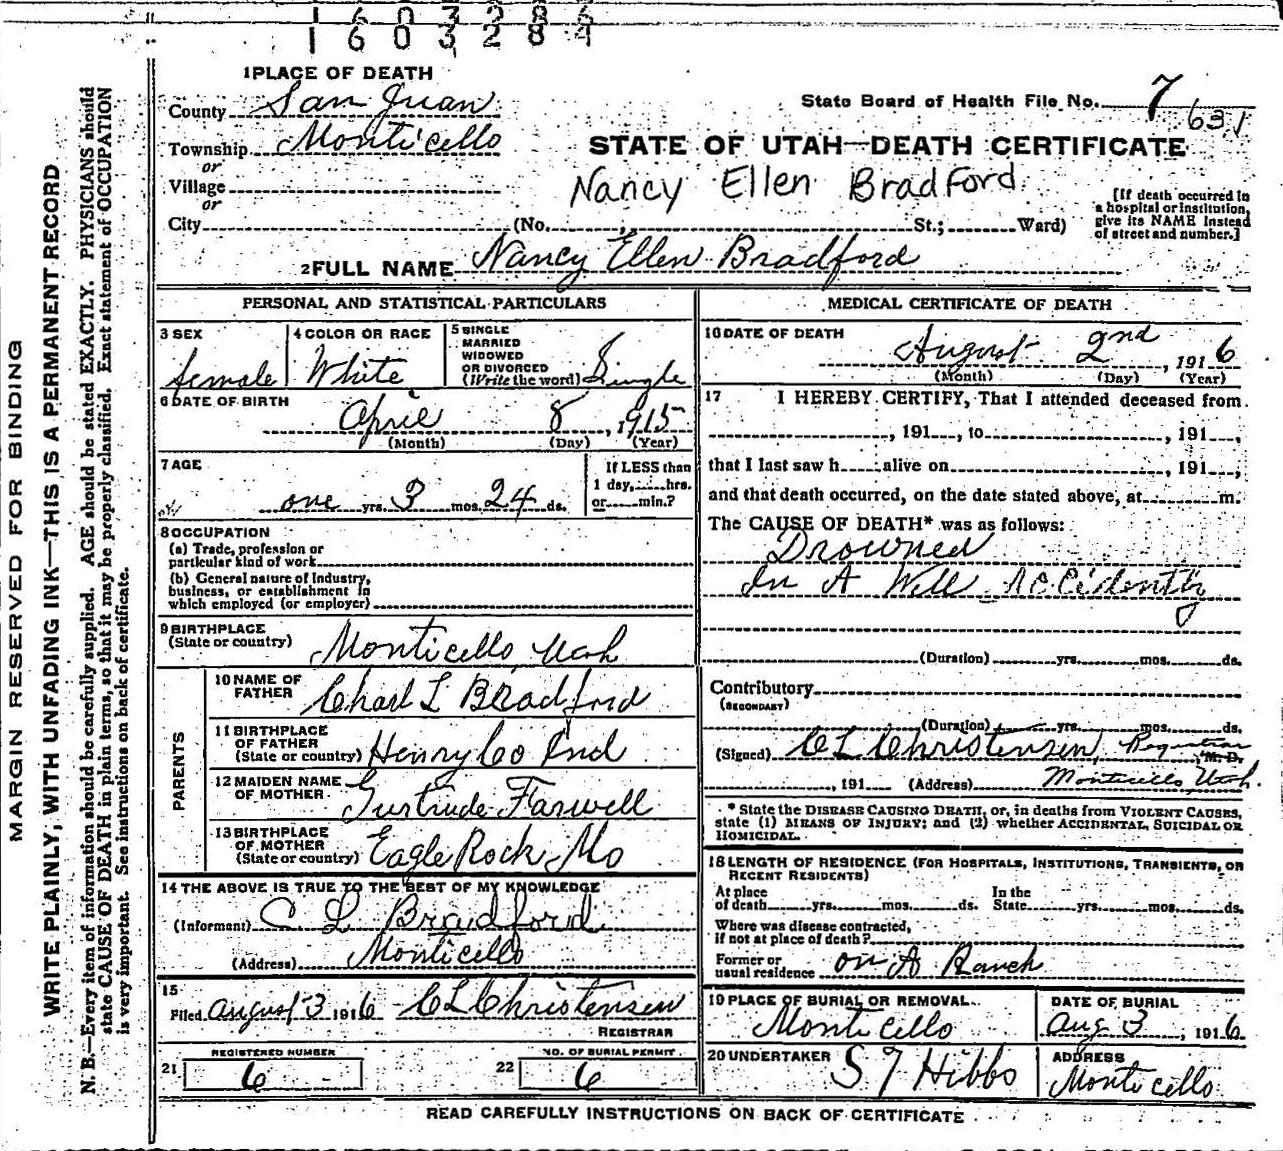 1603286
1603284
1 PLACE OF DEATH
County San Juan
Township Monticello
or
Village
or
City (No. , St.; Ward)
State Board of Health File No. 7
631
STATE OF UTAH—DEATH CERTIFICATE
Nancy Ellen Bradford
[If death occurred in
a hospital or institution,
give its NAME instead
of street and number.]
2 FULL NAME Nancy Ellen Bradford
PERSONAL AND STATISTICAL PARTICULARS
3 SEX
female
4 COLOR OR RACE
White
5 SINGLE
MARRIED
WIDOWED
OR DIVORCED
(Write the word) Single
6 DATE OF BIRTH
April 8, 1915
(Month) (Day) (Year)
7 AGE
one yrs. 3 mos. 24 ds.
If LESS than
1 day, hrs.
or min.?
8 OCCUPATION
(a) Trade, profession or
particular kind of work
(b) General nature of Industry,
business, or establishment in
which employed (or employer)
9 BIRTHPLACE
(State or country) Monticello Utah
PARENTS
10 NAME OF
FATHER Charl L Bradford
11 BIRTHPLACE
OF FATHER
(State or country) Henry Co Ind
12 MAIDEN NAME
OF MOTHER Gurtrude Farwell
13 BIRTHPLACE
OF MOTHER
(State or country) Eagle Rock Mo
14 THE ABOVE IS TRUE TO THE BEST OF MY KNOWLEDGE
(Informant) C L Bradford
(Address) Monticello
15
Filed August 3 1916 CL Christensen
REGISTRAR
21 REGISTERED NUMBER
6
22 NO. OF BURIAL PERMIT
6
MEDICAL CERTIFICATE OF DEATH
16 DATE OF DEATH
August 2nd, 1916
(Month) (Day) (Year)
17 I HEREBY CERTIFY, That I attended deceased from
, 191 , to , 191 ,
that I last saw h alive on , 191 ,
and that death occurred, on the date stated above, at m.
The CAUSE OF DEATH* was as follows:
Drowned
In A Well
(Duration) yrs. mos. ds.
Contributory
(SECONDARY)
(Duration) yrs. mos. ds.
(Signed) CL Christensen, M. D.
, 191 (Address) Monticello Utah.
* State the DISEASE CAUSING DEATH, or, in deaths from VIOLENT CAUSES,
state (1) MEANS OF INJURY; and (2) whether ACCIDENTAL, SUICIDAL OR
HOMICIDAL.
18 LENGTH OF RESIDENCE (FOR HOSPITALS, INSTITUTIONS, TRANSIENTS, OR
RECENT RESIDENTS)
At place
of death yrs. mos. ds.
In the
State yrs. mos. ds.
Where was disease contracted,
if not at place of death?
Former or
usual residence on A Ranch
19 PLACE OF BURIAL OR REMOVAL
Monticello
DATE OF BURIAL
Aug 3, 1916
20 UNDERTAKER S J Hibbs
ADDRESS
Monticello
READ CAREFULLY INSTRUCTIONS ON BACK OF CERTIFICATE
MARGIN RESERVED FOR BINDING
WRITE PLAINLY, WITH UNFADING INK—THIS IS A PERMANENT RECORD
N. B.—Every item of information should be carefully supplied. AGE should be stated EXACTLY. PHYSICIANS should
state CAUSE OF DEATH in plain terms, so that it may be properly classified. Exact statement of OCCUPATION
is very important. See instructions on back of certificate.